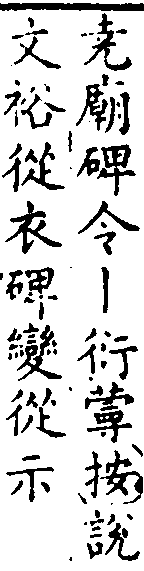 堯廟碑令丨衍蕇按說
文裕從衣碑變從示